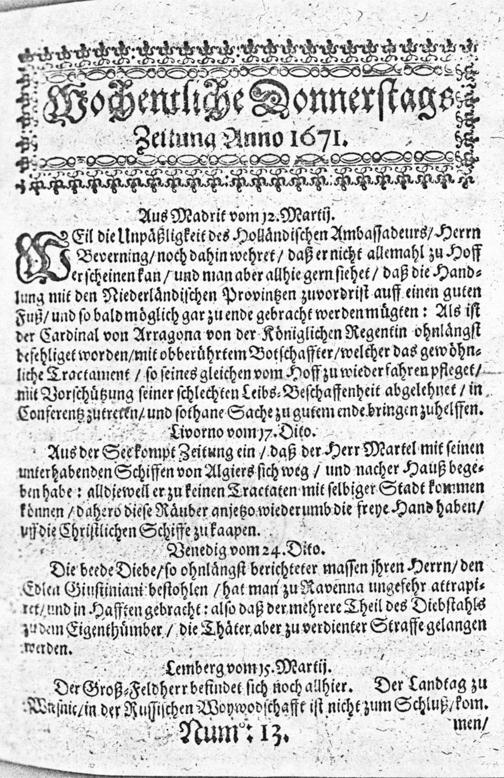 Wochentliche Donnerstags
Zeitung Anno 1671.
Aus Madrit vom 12. Martij.
WEil die Unpäßligkeit des Holländischen Ambassadeurs/ Herrn
Beverning/ noch dahin wehret/ daß er nicht allemahl zu Hoff
erscheinen kan/ und man aber allhie gern siehet/ daß die Hand-
lung mit den Niederländischen Provintzen zuvordrist auff einen guten
Fuß/ und so bald möglich gar zu ende gebracht werden mügten: Als ist
der Cardinal von Arragona von der Königlichen Regentin ohnlängst
befehliget worden/ mit obberührtem Botschaffter/ welcher das gewöhn-
liche Tractament/ so seines gleichen vom Hoff zu wiederfahren pfleget/
mit Vorschützung seiner schlechten Leibs-Beschaffenheit abgelehnet/ in
Conferentz zutreten/ und sothane Sache zu gutem ende bringen zuhelffen.
Livorno vom 17. Dito.
Aus der See kompt Zeitung ein/ daß der Herr Martel mit seinen
unterhabenden Schiffen von Algiers sich weg/ und nacher Hauß bege-
ben habe: alldieweil er zu keinen Tractaten mit selbiger Stadt kommen
können/ dahero diese Räuber anjetzo wiederumb die freye Hand haben/
uff die Christlichen Schiffe zu kaapen.
Venedig vom 24. Dito.
Die beede Diebe/ so ohnlängst berichteter massen ihren Herrn/ den
Edlen Giustiniani bestohlen/ hat man zu Ravenna ungefehr attrapi-
ret/ und in Hafften gebracht: also daß der mehrere Theil des Diebstahls
zu dem Eigenthümber/ die Thäter aber zu verdienter Straffe gelangen
werden.
Lemberg vom 15. Martij.
Der Groß-Feldherr befindet sich noch allhier. Der Landtag zu
Wisnie/ in der Russischen Woywodschafft ist nicht zum Schluß/ kom-
men/
Num°: 13.